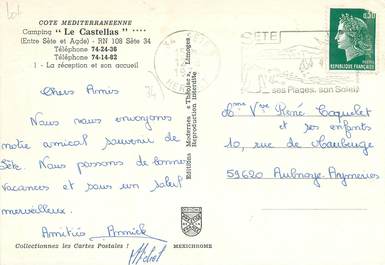 lot
COTE MEDITERRANEENNE
Camping "Le Castellas" ****
(Entre Sète et Agde) - RN 108 Sète 34
Téléphone 74-24-36
Téléphone 74-14-62
1 - La réception et son accueil
34
Chers Amis
Nous vous envoyons
notre amical souvenir de
Sète. Nous passons de bonnes
vacances et sous un soleil
merveilleux.
Amitiés Annick
Collectionnez les Cartes Postales !
MEXICHROME
Editions Modernes "Théojac", Limoges -
Reproduction interdite
SETE
ses Plages, son Soleil
0,30
REPUBLIQUE FRANÇAISE
Mme Vve René Coquelet
et ses enfants
10, rue de Maubeuge
59620 Aulnoye-Aymeries